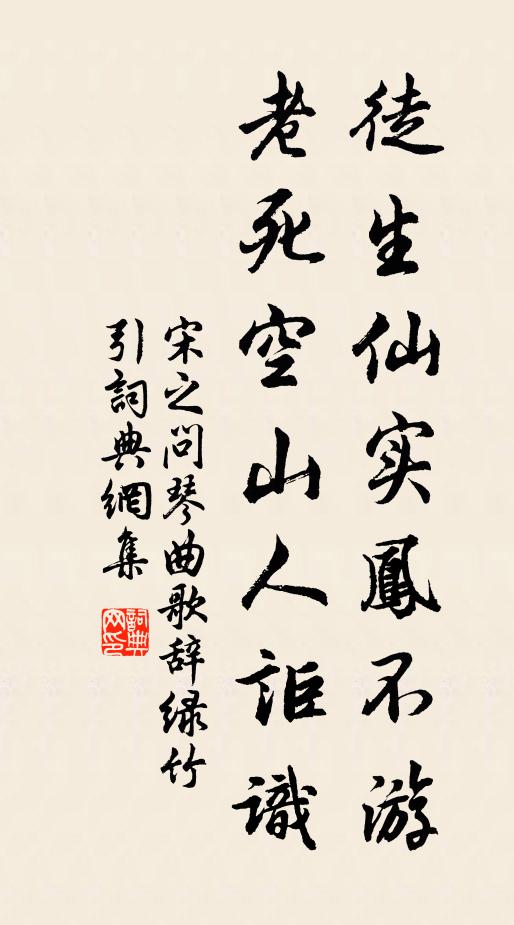 徒生仙实鳳不游
老死空山人詎識
宋之问琴曲歌辞绿竹
引詞典網集
詞典
网印